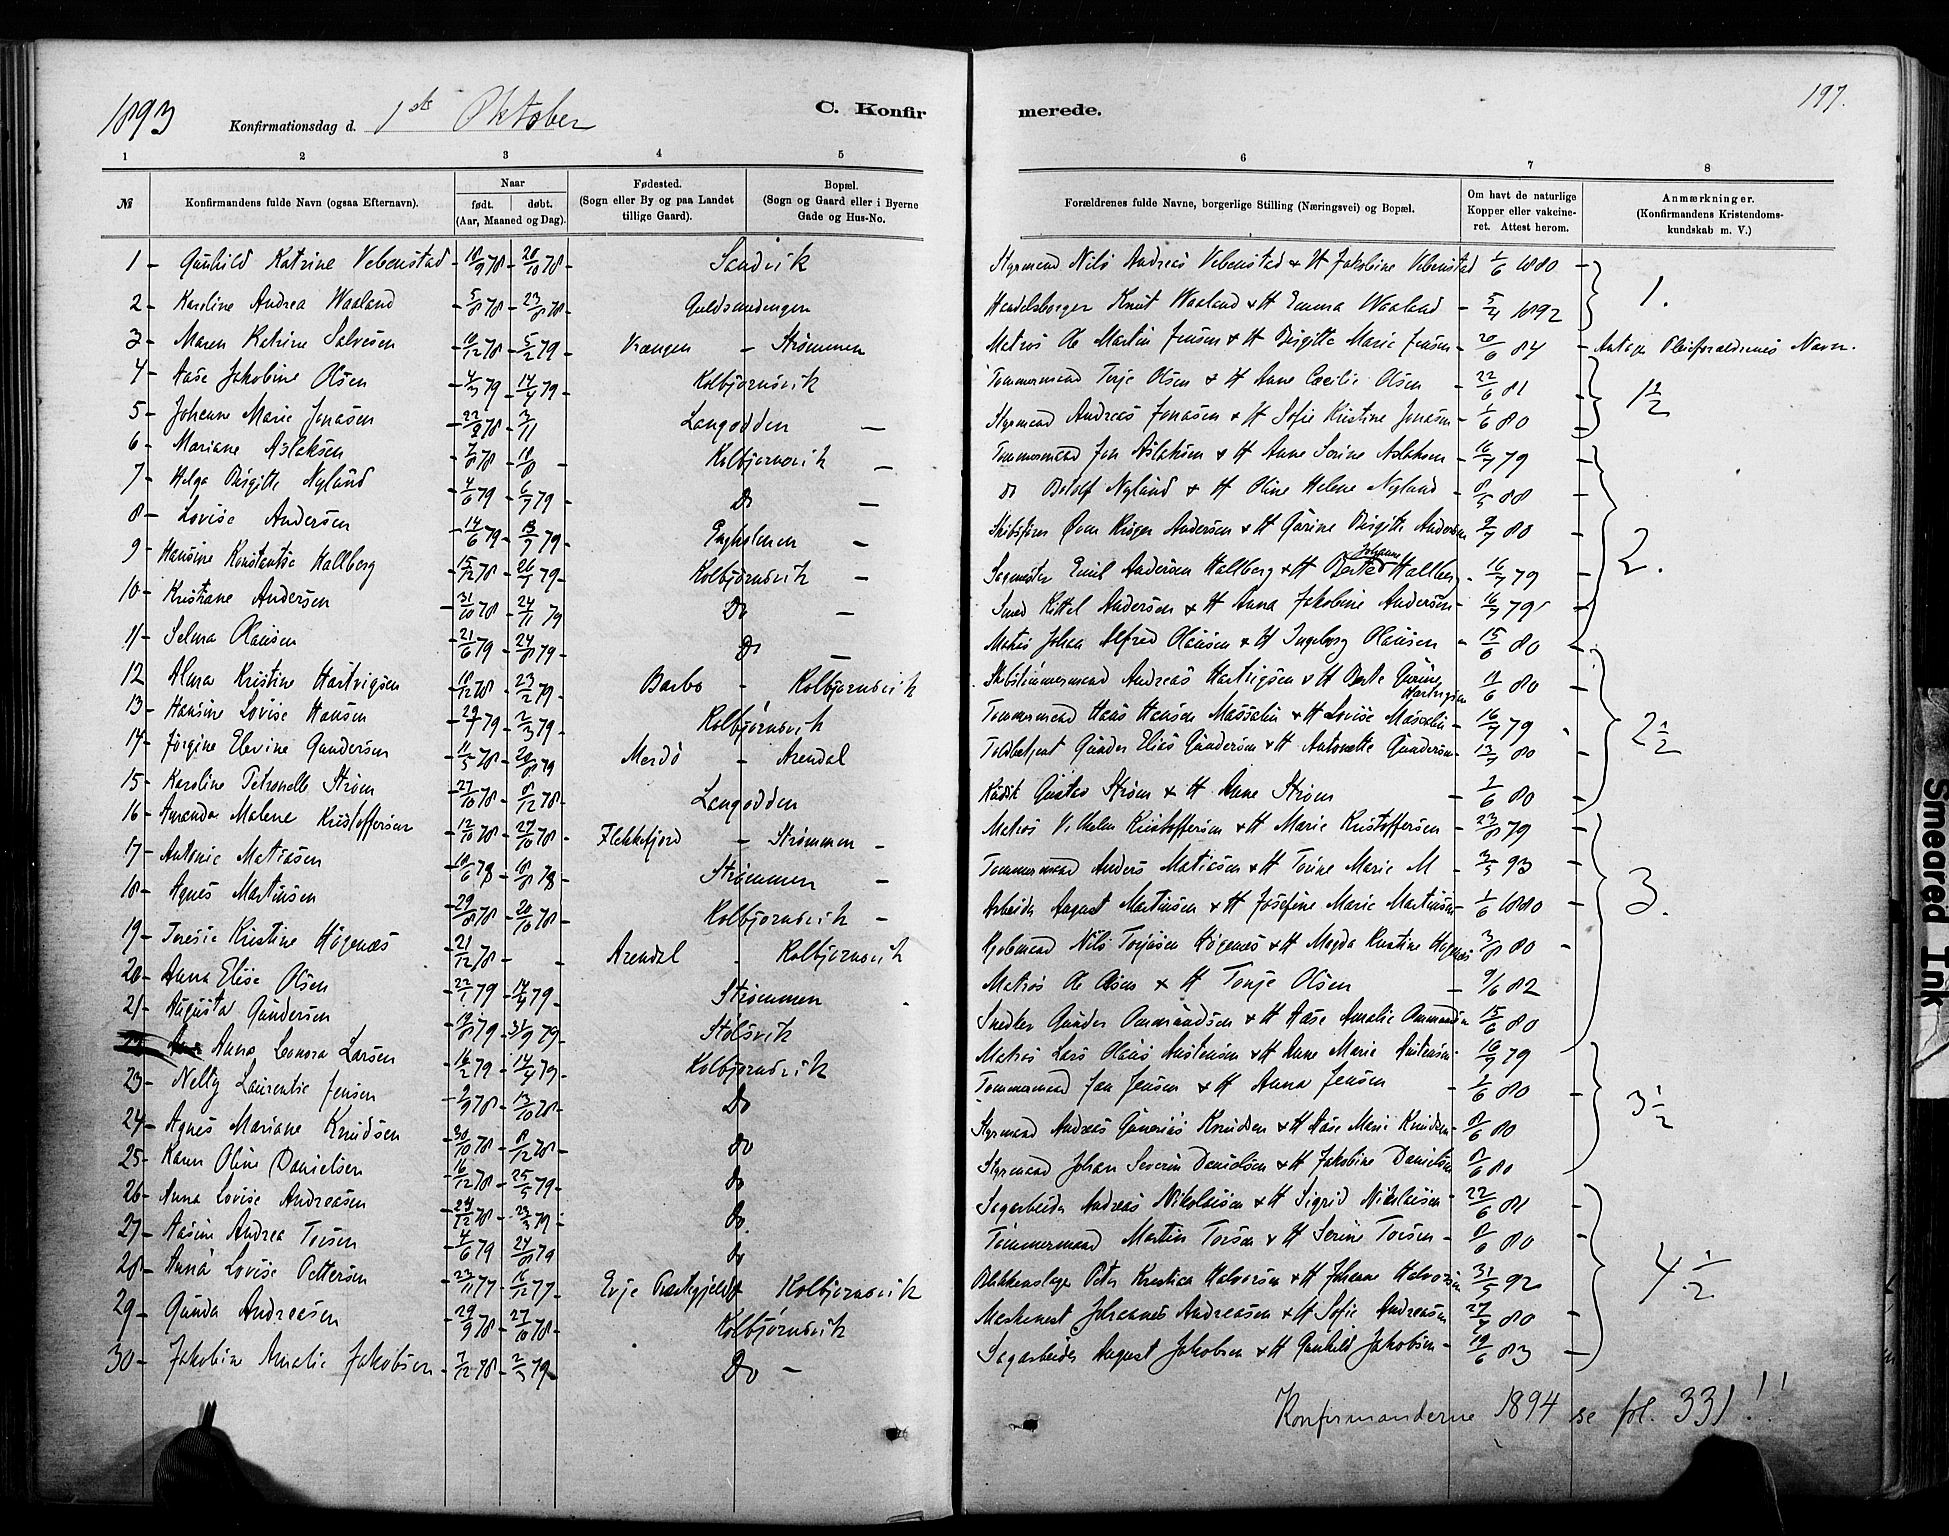 1893 Konfirmationsdag d. 1ste Oktober C. Konfirmerede. 197.
1 2 3 4 5 6 7 8
№ Konfirmandens fulde Navn (ogsaa Efternavn). Naar født. døbt. (Aar, Maaned og Dag). Fødested. (Sogn eller By og paa Landet tillige Gaard). Bopæl. (Sogn og Gaard eller i Byerne Gade og Hus-No. Forældrenes fulde Navne, borgerlige Stilling (Næringsvei) og Bopæl. Om havt de naturlige Kopper eller vakcineret. Attest herom. Anmærkninger. (Konfirmandens Kristendomskundskab m. V.)
1 - Gunhild Katrine Vebenstad - 18/9 78 - 20/10 78 - Sandvik Styrmand Nils Andreas Vebenstad & H Jakobine Vebenstad 1/6 1880 - 1.
2 - Karoline Andrea Waaland - 5/8 78 - 23/8 78 - Guldsmedengen Handelsborger Knut Waaland & H Emma Waaland - 5/4 1892 -
3 - Maren Katrine Salvesen - 10/12 78 - 5/2 79 - Vrangen - Strømmen Matros Ole Martin Jensen & H Birgitte Marie Jensen - 20/6 84 - Antager Pleieforældrenes Navn.
4 - Aase Jakobine Olsen - 4/3 79 - 14/4 79 - Kolbjørnsvik Tømmermand Terje Olsen & H Anne Cæcilie Olsen - 22/6 81 - 1 1/2
5 - Johanne Marie Jonasen - 22/8 78 - 3/11 Langodden - Styrmand Andreas Jonasen & H Sofie Kristine Jonasen - 1/6 80 -
6 - Mariane Aslaksen - 7/8 78 - 18/8 - Kolbjørnsvik - Tømmermand Jon Aslaksen & H Anne Serine Aslaksen - 16/7 79
7 - Helga Birgitte Nylund - 4/6 79 - 6/7 79 - Do - do Botolf Nylund & H Oline Helene Nylund - 8/5 88 -
8 - Lovise Andersen - 14/6 79 - 13/7 79 - - Skibsfører Øven Krøger Andersen & H Gurine Birgitte Andersen 9/7 80 -
9 - Hansine Konstantse Hallberg - 15/12 78 - 26/1 79 - Kolbjørnsvik - Sagmester Emil Andersen Hallberg & H Johanne Hallberg - 16/7 79 - 2.
10 - Kristiane Andersen - 31/10 78 - 24/11 79 Do - Smed Kittel Andersen & H Anna Jakobine Andersen - 16/7 79 -
11 - Selma Olausen - 21/6 79 - 24/8 79 - Do - Matros Johan Alfred Olausen & H Ingeborg Olausen - 15/6 80 -
12 Alma Kristine Hartvigsen - 18/12 78 - 23/2 79 - Barbo - Kolbjørnsvik Skibstømmermand Andreas Hartvigsen & H Berte Gurine Hartvigsen 11/6 80 -
13 - Hansine Lovise Hansen - 29/1 79 - 2/3 79 - Kolbjørnsvik Tømmermand Hans Hansen Massalin & H Lovise Massalin - 16/7 79
14 - Jørgine Elevine Gundersen - 11/5 78 - 20/8 79 Merdø - Arendal Toldbetjent Gunder Elias Gundersen & H Antonette Gundersen - 13/7 80 - 2 1/2
15 - Karoline Petronelle Strøm - 27/10 78 - 8/12 78 - Langodden Gustav Strøm & H Anne Strøm - 1/6 80 -
16 - Amanda Malene Kristoffersen - 12/10 78 - 27/10 78 - Flekkefjord - Strømmen - Matros Vilhelm Kristoffersen & H Marie Kristoffersen - 23/8 79 -
17 - Antonie Matiasen - 18/6 78 - 8/8 78 - Strømmen - Tømmermand Anders Matiasen & H Torine Marie M - 3/5 93 -
18 - Agnes Martinsen - 29/8 78 - 20/10 78 - Kolbjørnsvik - Arbeider August Martinsen & H Josefine Marie Martinsen - 1/6 1880 - 3.
19 - Teresie Kristine Høgenæs - 21/12 78 - - Arendal - Kolbjørnsvik Kjøbmand Nils Torjusen Høgenæs & H Magda Kristine Høgenæs 3/8 80 -
20 - Anna Elise Olsen - 22/1 79 - 14/4 79 - Strømmen Matros Ole Olsen & H Tonje Olsen - 9/6 82
21 - Augusta Gundersen - 19/8 79 - 31/9 79 - Stølsvik Snedker Gunder Ommundsen & H Aase Amalie Ommundsen 15/6 80 -
22 Anna Leonora Larsen - 16/2 79 - 14/4 79 - Kolbjørnsvik Matros Lars Olaus Austensen & H Anne Marie Austensen - 16/7 79
23 - Nelly Laurentse Jensen - 2/9 78 - 13/10 78 - Do Tømmermand Jan Jensen & H Anna Jensen - 1/6 80 -
24 - Agnes Mariane Knudsen - 30/10 78 - 8/12 78 - do Styrmand Andreas Gunerius Knudsen & H Aase Marie Knudsen - 8/6 80 3 1/2
25 - Karen Oline Danielsen - 16/12 78 - 25/5 79 - do Styrmand Johan Severin Danielsen & H Jakobine Danielsen 8/6 80
26 - Anna Lovise Andreasen - 24/12 78 - 23/3 79 - do Sagarbeider Andreas Nikolaisen & H Sigrid Nikolaisen - 22/6 81 -
27 - Aasine Andrea Torsen - 4/6 79 - 24/8 79 do Tømmermand Martin Torsen & H Serine Torsen - 8/6 80 -
28 - Anna Lovise Pettersen - 23/11 77 - 16/12 77 - Evje Præstegjeld Kolbjørnsvik Blikkenslager Peter Kristian Halvorsen & H Johanne Halvorsen 31/5 92 - 4 1/2
29 - Gunda Andreasen - 29/9 78 - 27/10 78 - Kolbjørnsvik Maskinist Johannes Andreasen & H Sofie Andreasen 27/9 80 -
30 - Jakobine Amalie Jakobsen - 7/12 78 - 2/3 79 - Do - Sagarbeider August Jakobsen & H Gunhild Jakobsen - 19/6 83 -
Konfirmanderne 1894 se fol. 331!!
Smeared Ink